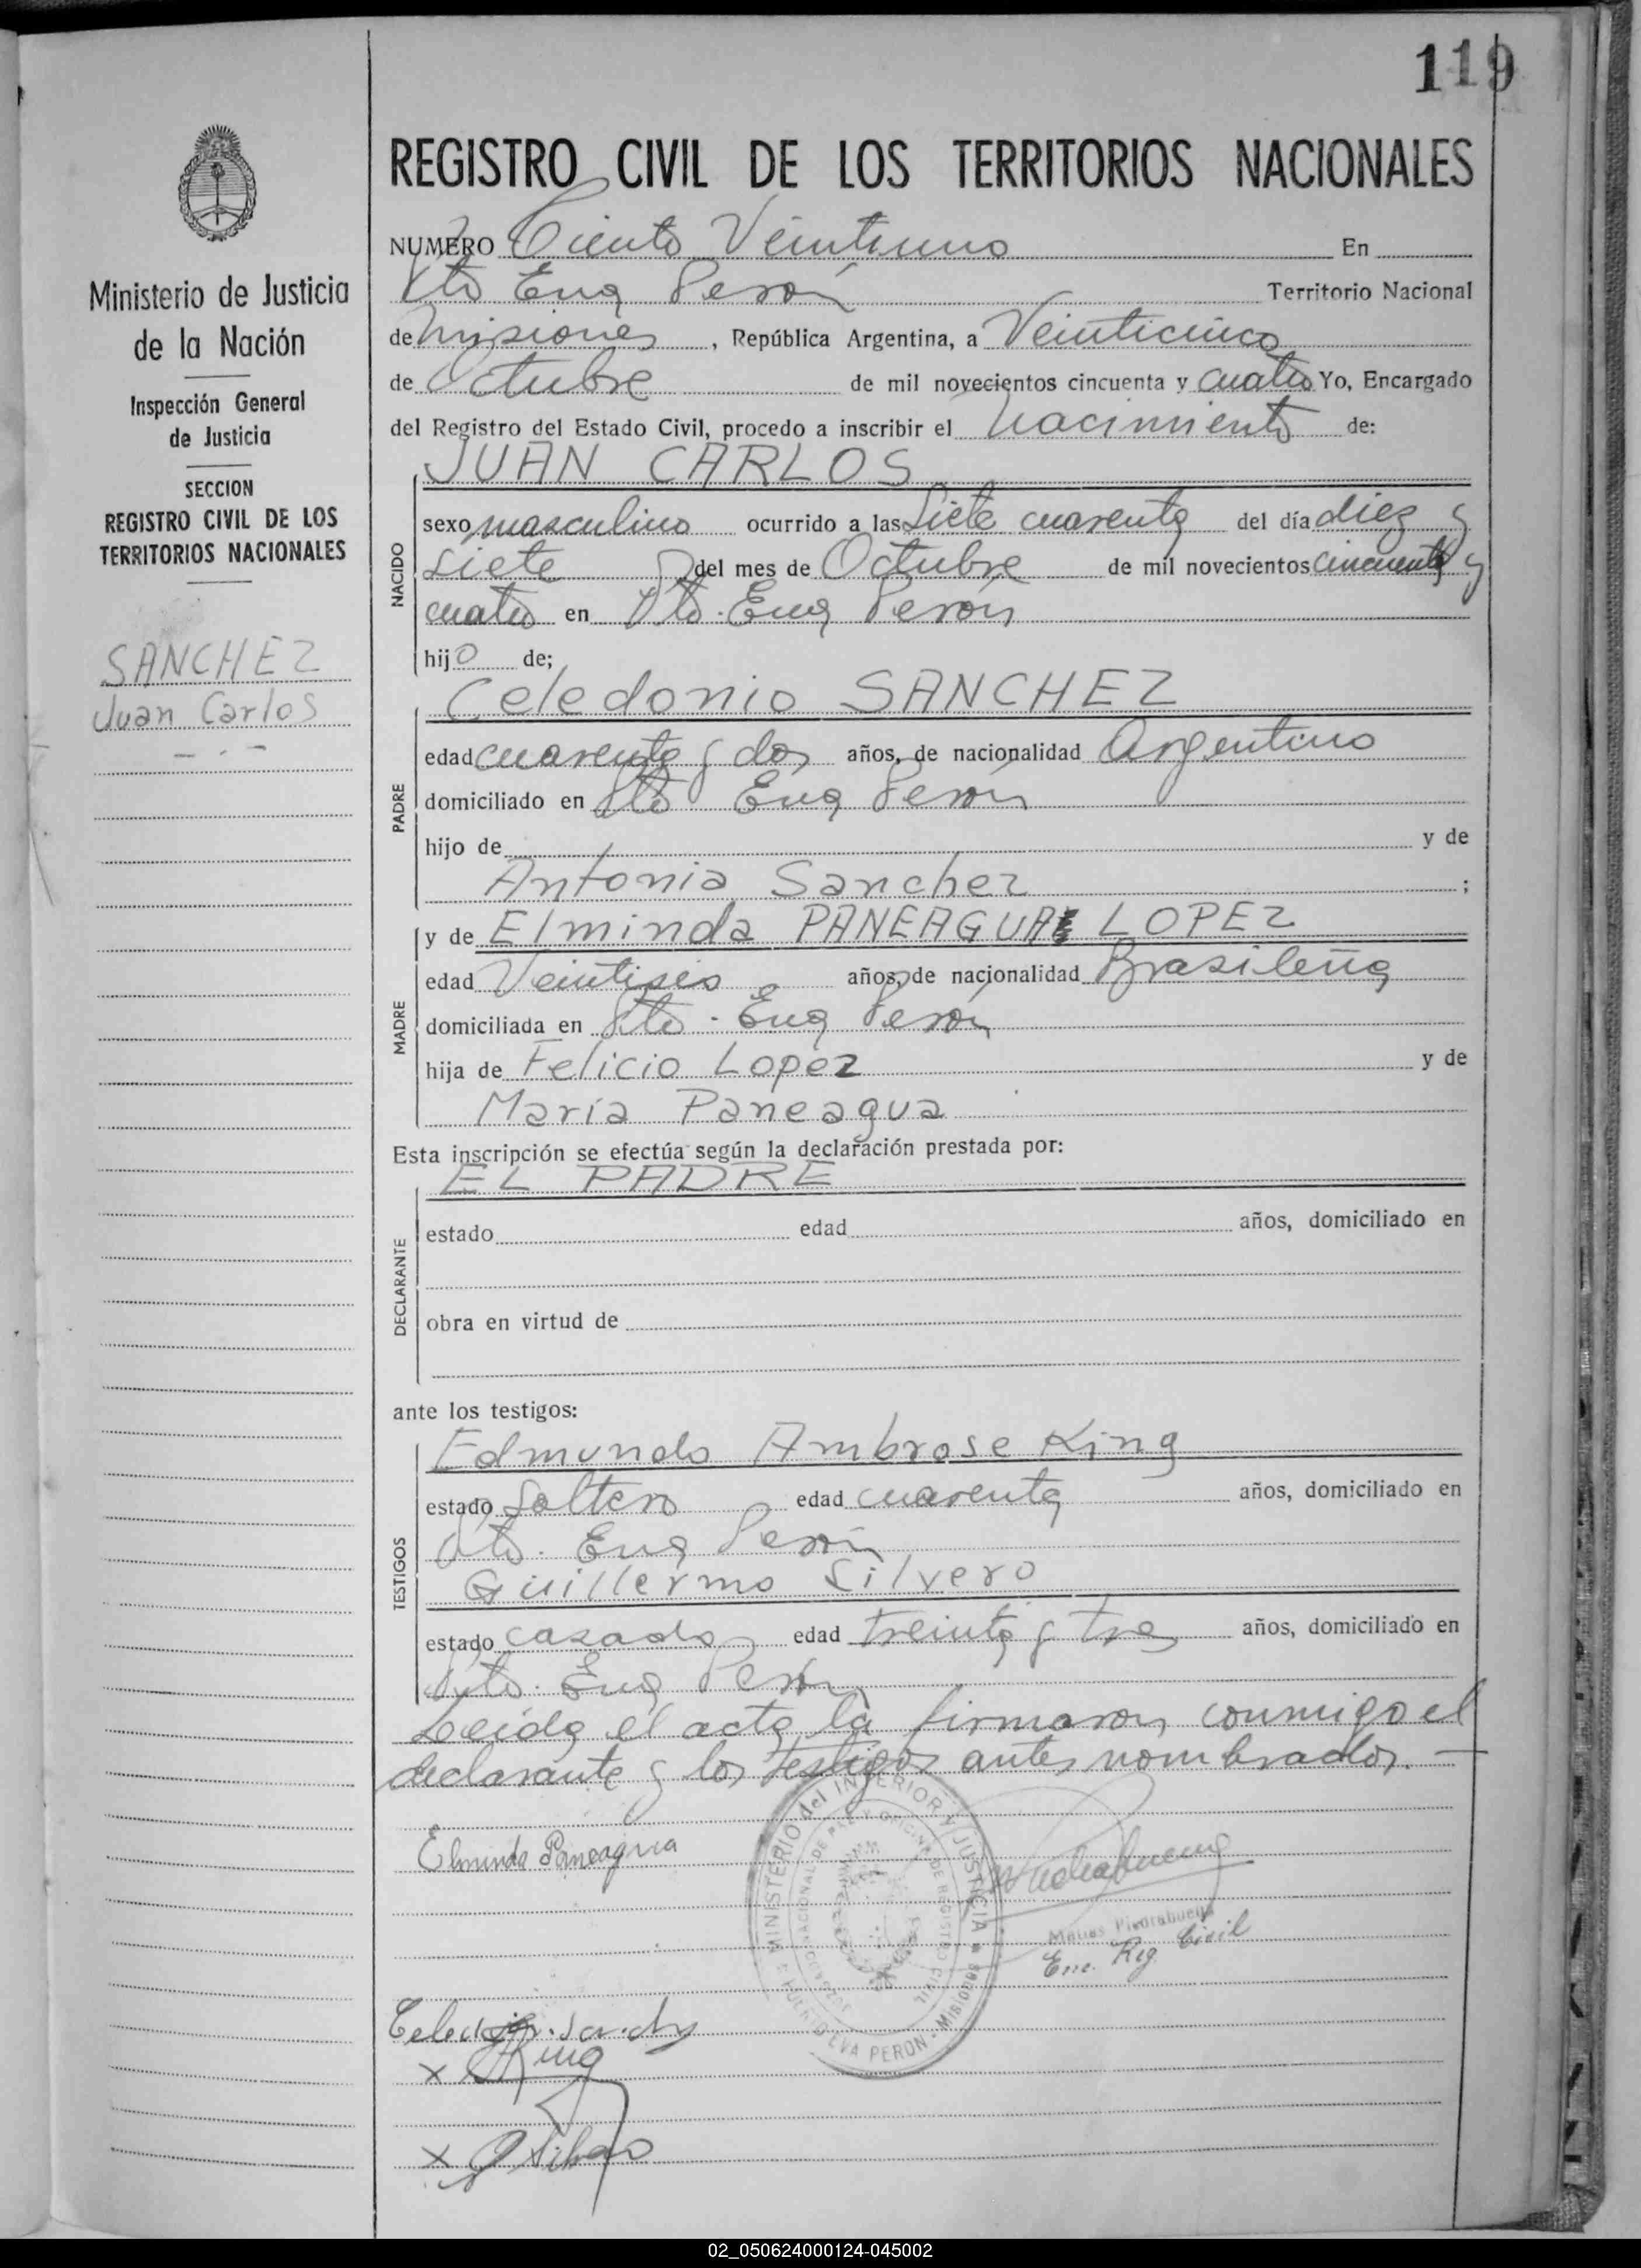 119
REGISTRO CIVIL DE LOS TERRITORIOS NACIONALES
Ministerio de Justicia
de la Nación
Inspección General
de Justicia
SECCION
REGISTRO CIVIL DE LOS
TERRITORIOS NACIONALES
SANCHEZ
Juan Carlos
NUMERO Ciento Veintiuno En
Pto Eva Perón Territorio Nacional
de Misiones, República Argentina, a Veinticinco
de Octubre de mil novecientos cincuenta y cuatro Yo, Encargado
del Registro del Estado Civil, procedo a inscribir el nacimiento de:
JUAN CARLOS
NACIDO
sexo masculino ocurrido a las siete cuarenta del día diez y
siete del mes de Octubre de mil novecientos cincuenta y
cuatro en Pto. Eva Perón
hijo de;
Celedonio SANCHEZ
PADRE
edad cuarenta y dos años, de nacionalidad Argentino
domiciliado en Pto Eva Perón
hijo de y de
Antonia Sanchez ;
y de Elminda PANEAGUA LOPEZ
MADRE
edad Veintiseis años, de nacionalidad Brasileña
domiciliada en Pto. Eva Perón
hija de Felicio Lopez y de
María Paneagua
Esta inscripción se efectúa según la declaración prestada por:
EL PADRE
DECLARANTE
estado edad años, domiciliado en
obra en virtud de
ante los testigos:
Edmundo Ambrose King
TESTIGOS
estado soltero edad cuarenta años, domiciliado en
Pto. Eva Perón
Guillermo Silvero
estado casado edad treinta y tres años, domiciliado en
Pto. Eva Perón
Leida el acta la firmaron conmigo el
declarante y los testigos antes nombrados. —
Elminda Paneagua
MINISTERIO del INTERIOR Y JUSTICIA
OFICINA DE REGISTRO CIVIL
PUERTO EVA PERON - Misiones
Matias Piedrabuena
Enc. Reg. Civil
x King
x G Silvero
02_050624000124-045002